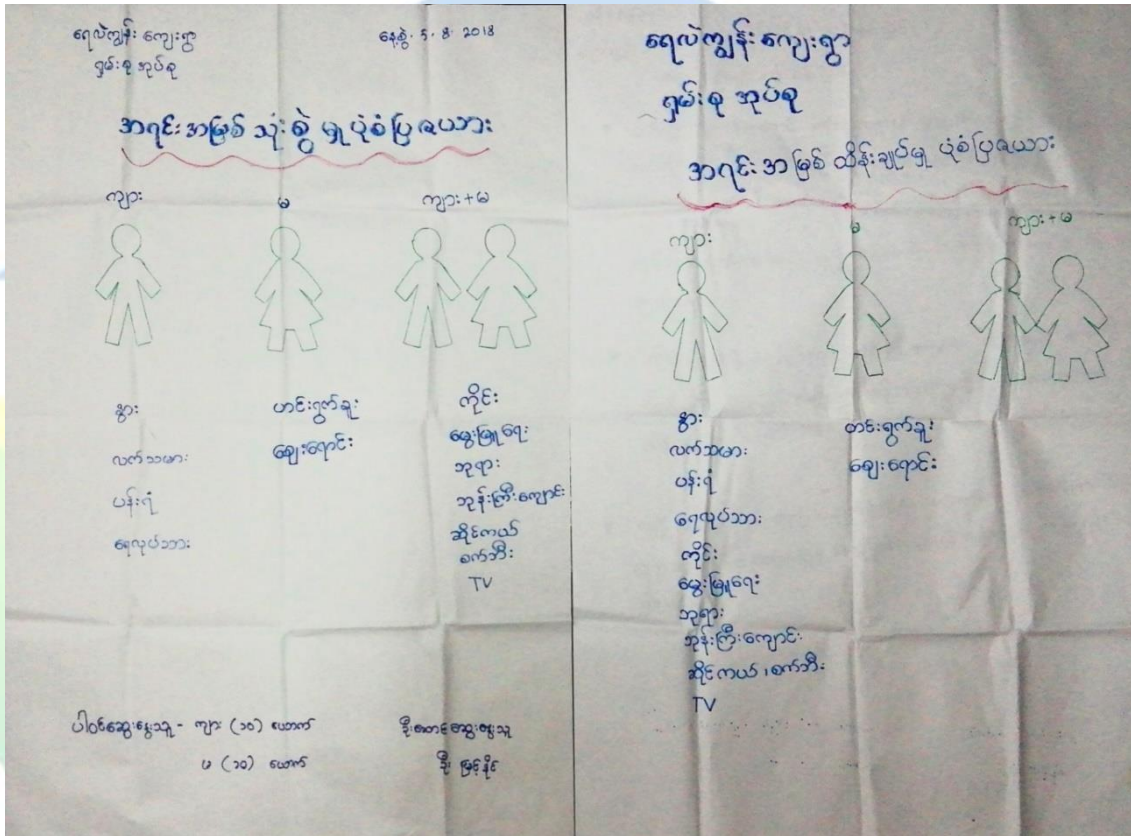 ရေလဲကျွန်း ကျေးရွာ
ရှမ်းစု အုပ်စု
နေ့စွဲ. 5. 8. 2018
အရင်းအမြစ် သုံးစွဲမှုပုံစံပြဇယား
ကျား
မ
ကျား+မ
နွား
လက်သမား
ပန်းရံ
ရေလုပ်သား
ဟင်းရွက်ခူး
ဈေးရောင်း
ကိုင်း
မွေးမြူရေး
ဘုရား
ဘုန်းကြီးကျောင်း
ဆိုင်ကယ်
စက်ဘီး
TV
ပါဝင်ဆွေးနွေးသူ - ကျား (၁၀) ယောက်
မ (၁၀) ယောက်
ဦးဆောင်ဆွေးနွေးသူ
ဦး မြင့်နိုင်
ရေလဲကျွန်း ကျေးရွာ
ရှမ်းစု အုပ်စု
အရင်းအမြစ် ထိန်းချုပ်မှု ပုံစံပြဇယား
ကျား
မ
ကျား+မ
နွား
လက်သမား
ပန်းရံ
ရေလုပ်သား
ကိုင်း
မွေးမြူရေး
ဘုရား
ဘုန်းကြီးကျောင်း
ဆိုင်ကယ်၊ စက်ဘီး
TV
ဟင်းရွက်ခူး
ဈေးရောင်း